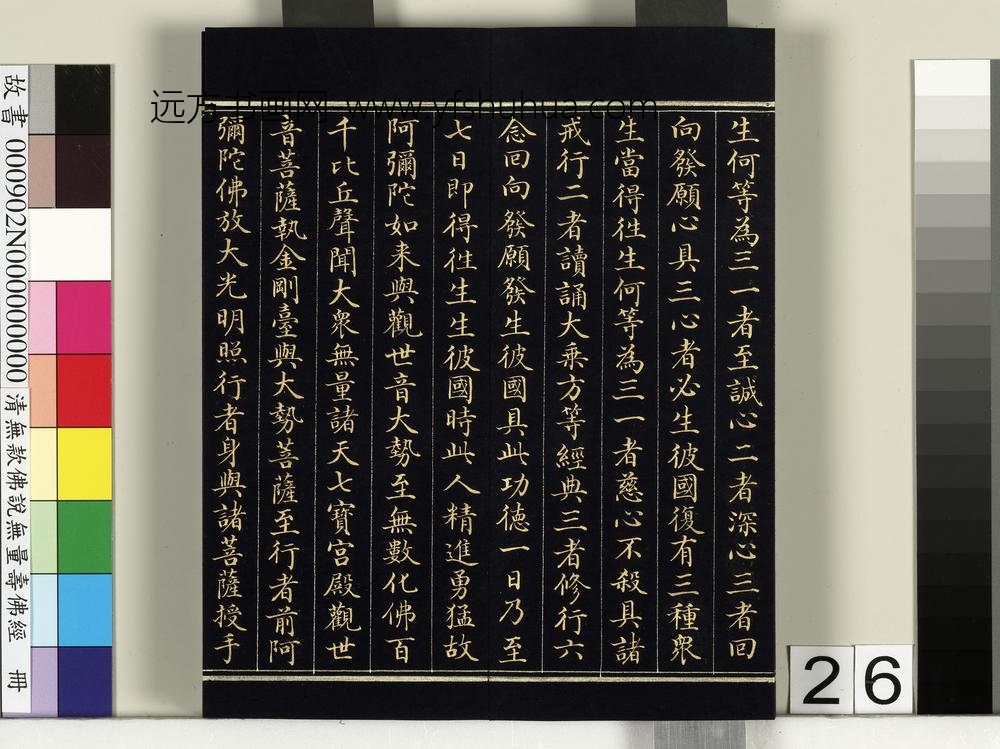 生何等為三一者至誠心二者深心三者回
向發願心具三心者必生彼國復有三種眾
生當得往生何等為三一者慈心不殺具諸
戒行二者讀誦大乘方等經典三者修行六
念回向發願發生彼國具此功德一日乃至
七日即得往生生彼國時此人精進勇猛故
阿彌陀如来與觀世音大勢至無數化佛百
千比丘聲聞大眾無量諸天七寶宮殿觀世
音菩薩執金剛臺與大勢菩薩至行者前阿
彌陀佛放大光明照行者身與諸菩薩授手
远方书画网 www.yfshuhua.com
故書 000902N000000000 清無款佛說無量壽佛經 冊
26